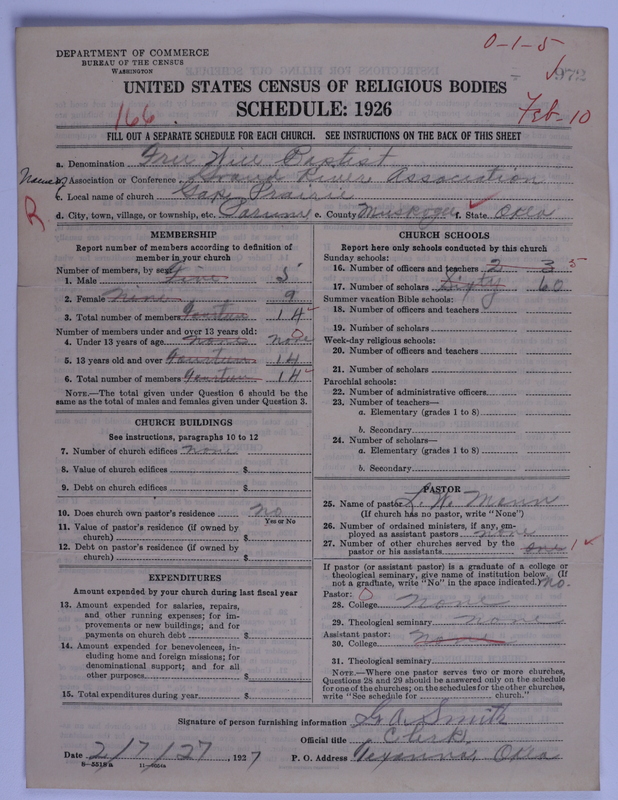 DEPARTMENT OF COMMERCE
BUREAU OF THE CENSUS
WASHINGTON
0-1-5
972
UNITED STATES CENSUS OF RELIGIOUS BODIES
SCHEDULE: 1926
166
Feb-10
FILL OUT A SEPARATE SCHEDULE FOR EACH CHURCH. SEE INSTRUCTIONS ON THE BACK OF THIS SHEET
a. Denomination Free Will Baptist
b. Association or Conference Grand River Association
c. Local name of church Prairie
R
d. City, town, village, or township, etc. Porum e. County Muskogee f. State Okla
MEMBERSHIP
Report number of members according to definition of
member in your church
Number of members, by sex:
1. Male Five 5
2. Female Nine 9
3. Total number of members Fourteen 14
Number of members under and over 13 years old:
4. Under 13 years of age None none
5. 13 years old and over Fourteen 14
6. Total number of members Fourteen 14
NOTE.—The total given under Question 6 should be
same as the total of males and females given under Question 3.
CHURCH BUILDINGS
See instructions, paragraphs 10 to 12
7. Number of church edifices none
8. Value of church edifices $
9. Debt on church edifices $
10. Does church own pastor's residence No
Yes or No
11. Value of pastor's residence (if owned by
church) $
12. Debt on pastor's residence (if owned by
church) $
EXPENDITURES
Amount expended by your church during last fiscal year
13. Amount expended for salaries, repairs,
and other running expenses; for im-
provements or new buildings; and for
payments on church debt $
14. Amount expended for benevolences, in-
cluding home and foreign missions; for
denominational support; and for all
other purposes $
15. Total expenditures during year $
CHURCH SCHOOLS
Report here only schools conducted by this church
Sunday schools:
16. Number of officers and teachers 2 3 5
17. Number of scholars Sixty 60
Summer vacation Bible schools:
18. Number of officers and teachers
19. Number of scholars
Week-day religious schools:
20. Number of officers and teachers
21. Number of scholars
Parochial schools:
22. Number of administrative officers
23. Number of teachers—
a. Elementary (grades 1 to 8)
b. Secondary
24. Number of scholars—
a. Elementary (grades 1 to 8)
b. Secondary
PASTOR
25. Name of pastor L. W. Mann
(If church has no pastor, write "None")
26. Number of ordained ministers, if any, em-
ployed as assistant pastors none
27. Number of other churches served by the
pastor or his assistants one 1
If pastor (or assistant pastor) is a graduate of a college or
theological seminary, give name of institution below. (If
not a graduate, write "No" in the space indicated.) No.
Pastor:
28. College None
29. Theological seminary none
Assistant pastor:
30. College None
31. Theological seminary
NOTE.—Where one pastor serves two or more churches,
Questions 28 and 29 should be answered only on the schedule
for one of the churches; on the schedules for the other churches,
write "See schedule for church."
Signature of person furnishing information G. A. Smith
Official title Clerk
Date 2/7/27, 1927 P. O. Address Texanna, Okla
8-5518a 11-6054a